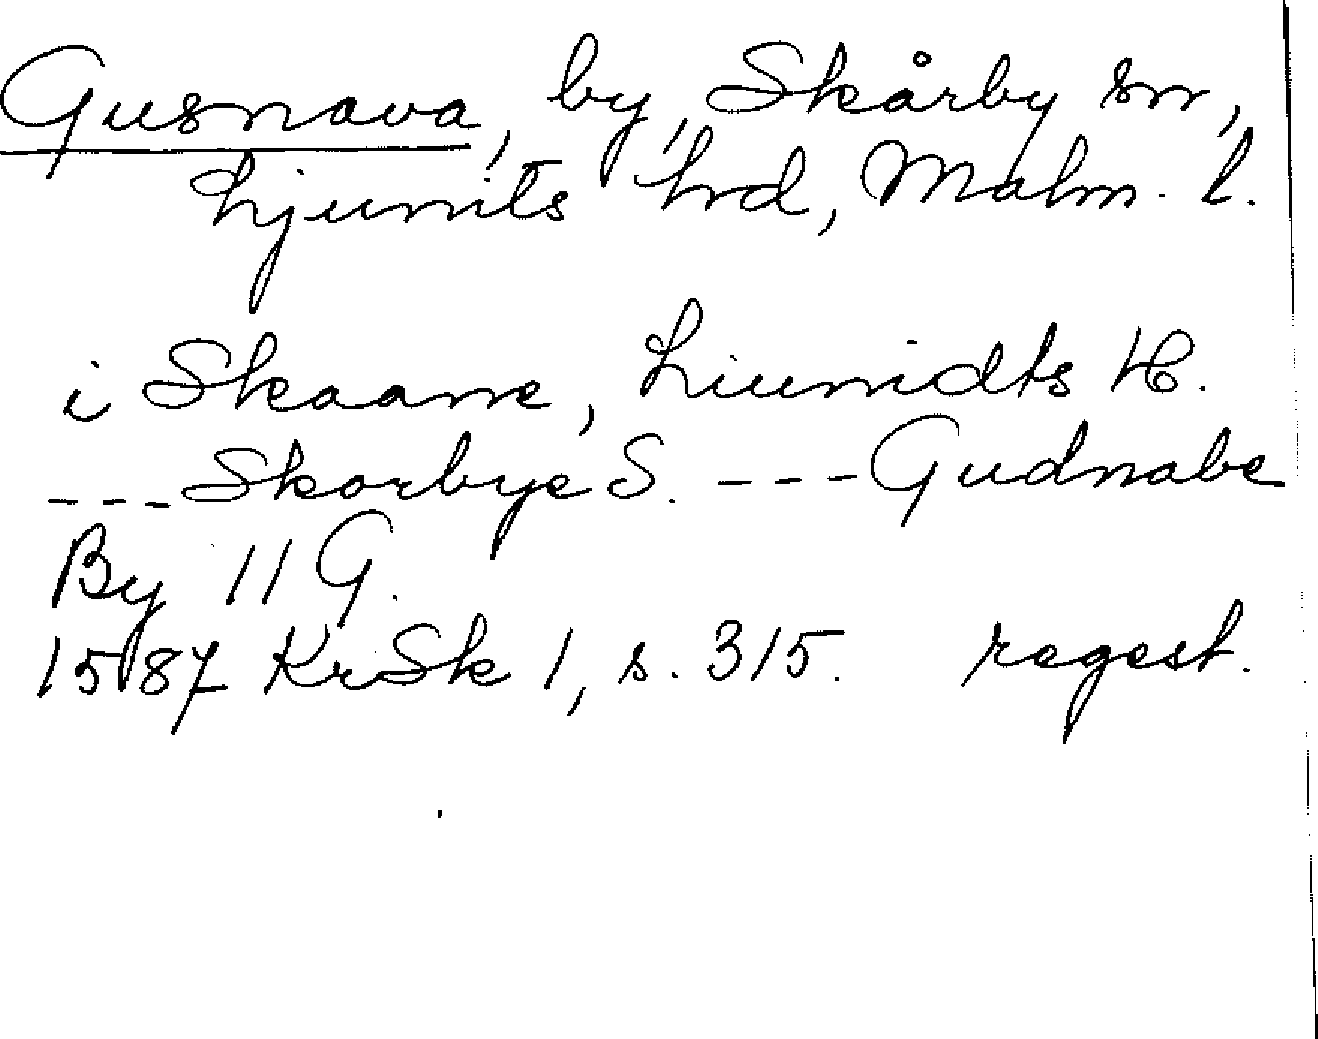 Gusnava, by, Skårby sn,
Ljunits hrd, Malm. l.
i Skaane, Liunidts H.
---Skorbye S. ---Gudnabe
By 11 G.
1587 KrSk 1, s. 315. regest.